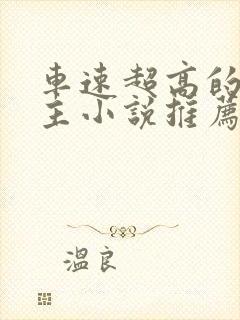 車速超高的
主小說推薦
溫良